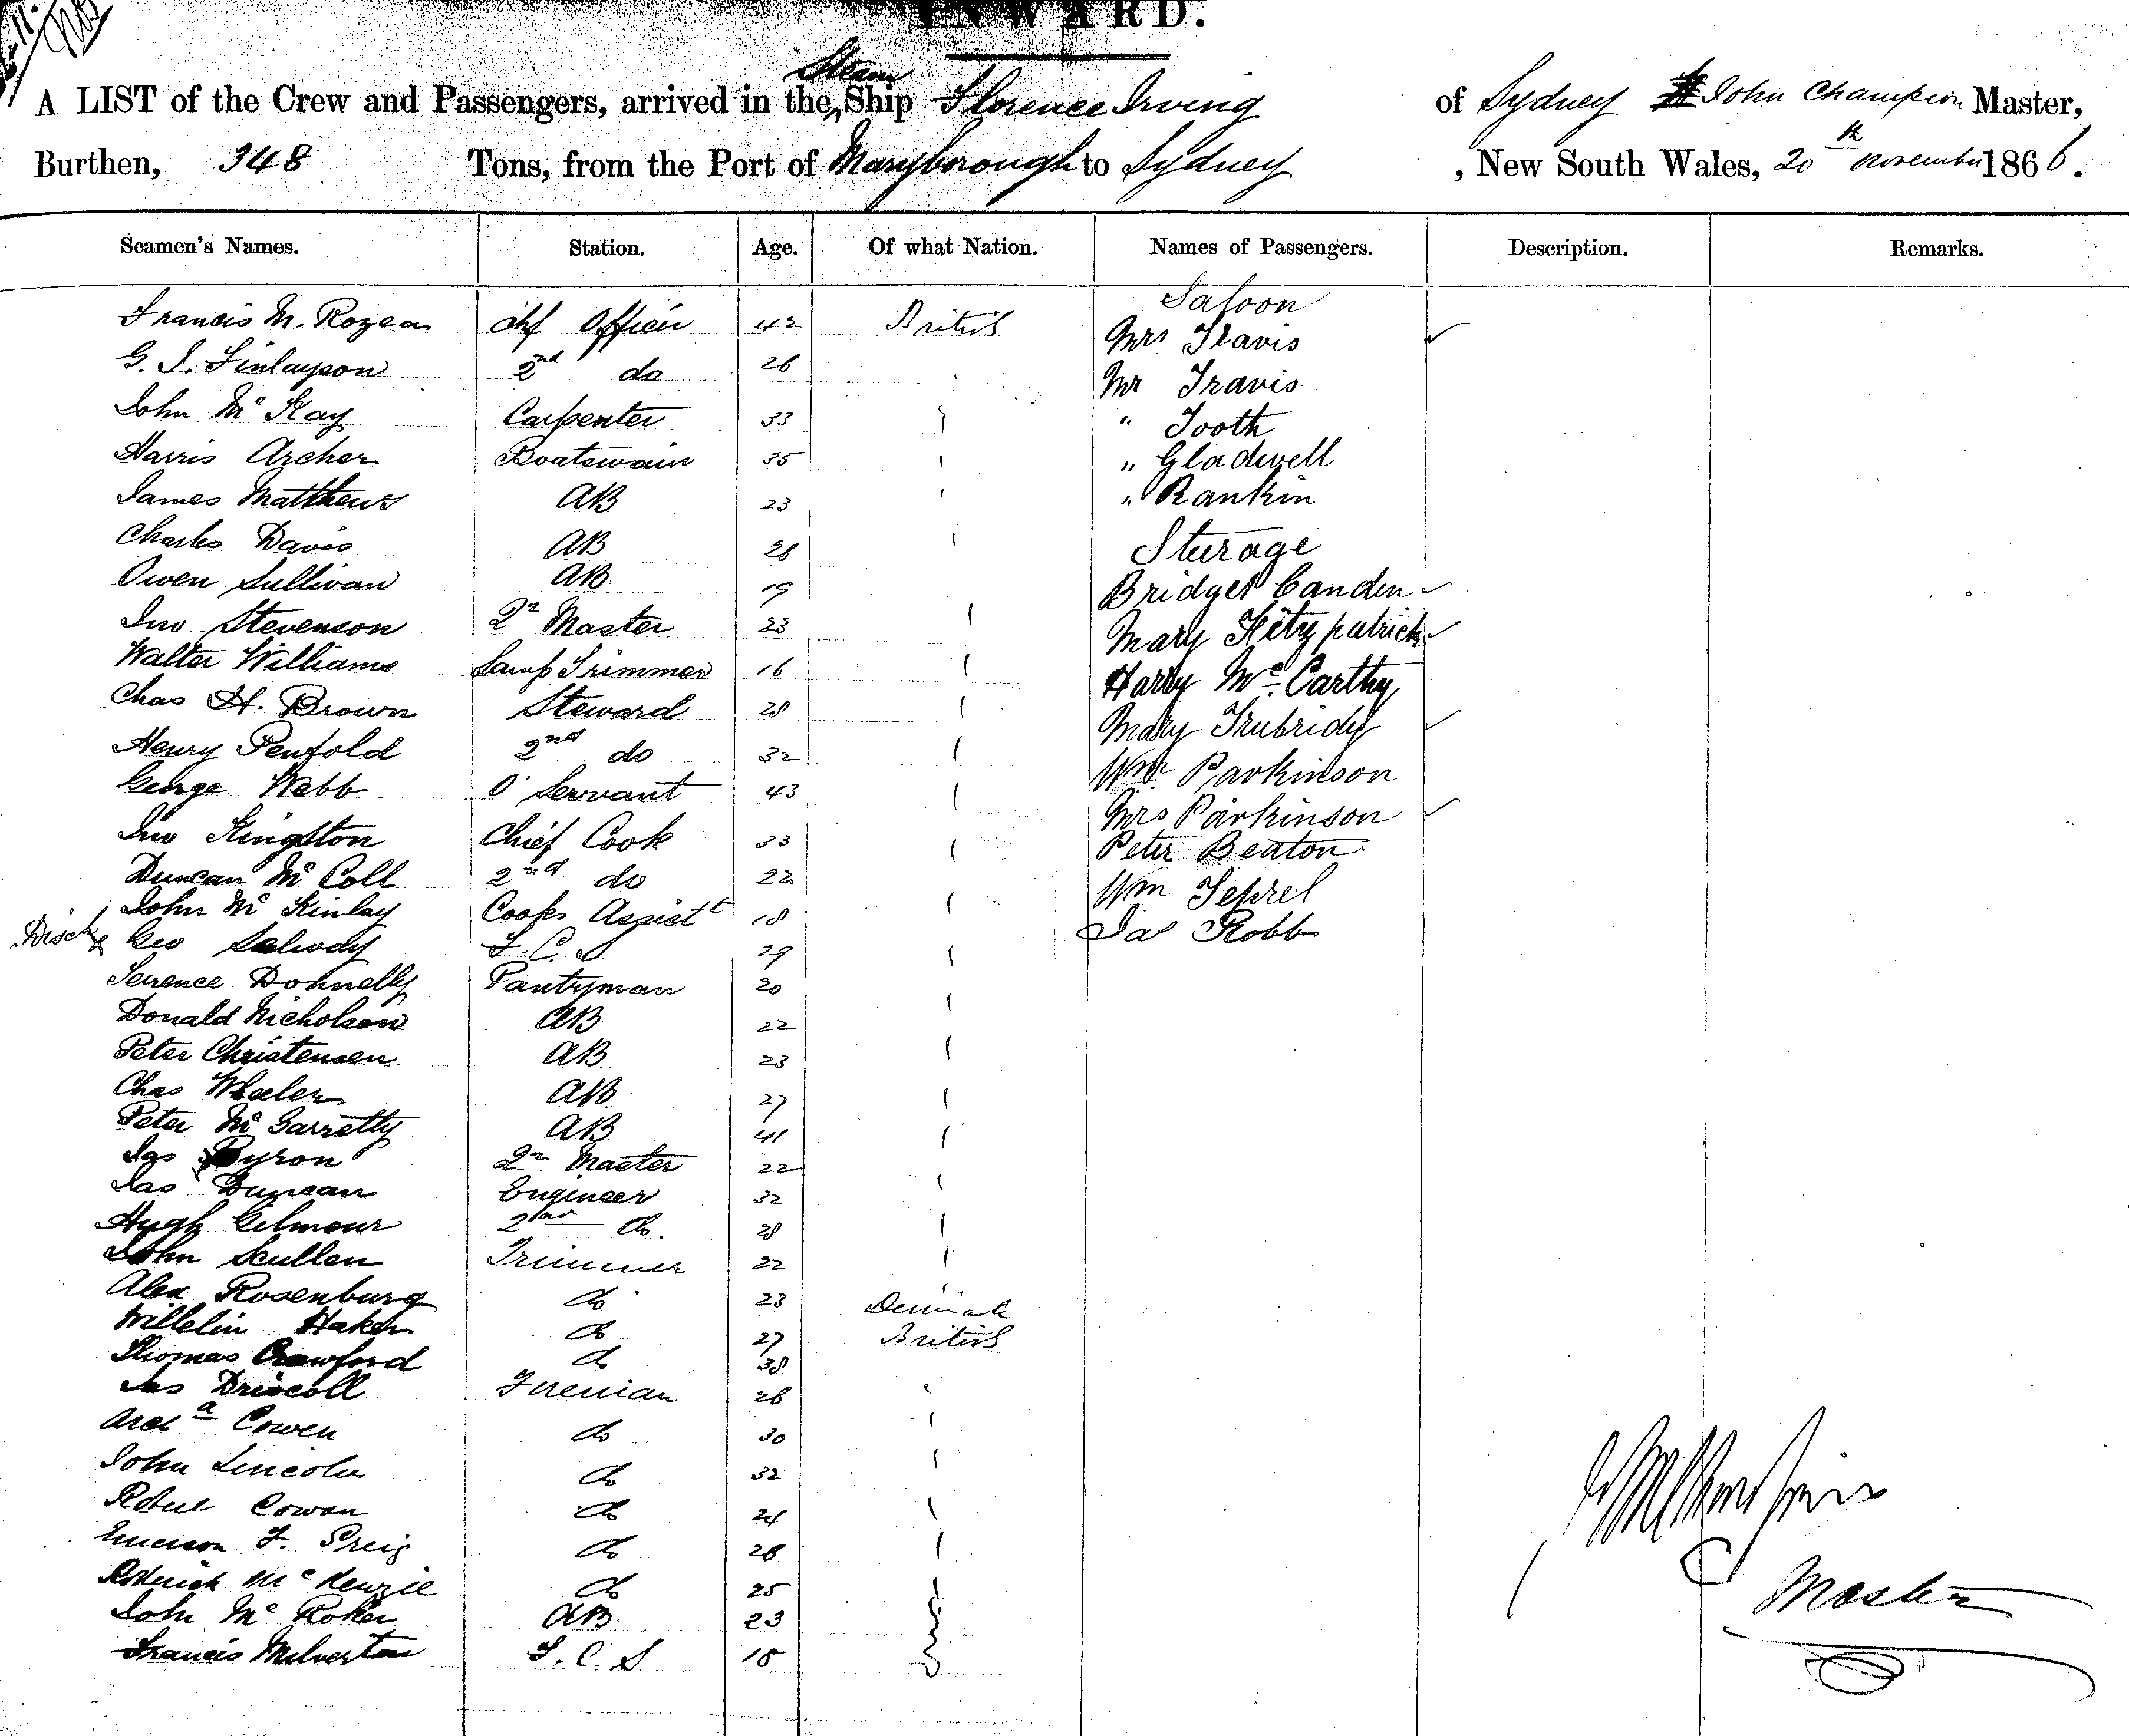 INWARD.
Steam
A LIST of the Crew and Passengers, arrived in the Ship Florence Irving of Sydney John Champion Master,
Burthen, 348 Tons, from the Port of Maryborough to Sydney, New South Wales, 20th November 1866.
Seamen's Names. Station. Age. Of what Nation. Names of Passengers. Description. Remarks.
Saloon
Francis M. Rozea Chf Officer 42 British Mrs Travis
G. S. Finlayson 2nd do 26 Mr Travis
John Mc Kay Carpenter 33 " Tooth
Harris Archer Boatswain 35 " Gladwell
James Matthews AB 23 " Rankin
Charles Davis AB 28 Sturage
Owen Sullivan AB 19 Bridget Canden
Jno Stevenson Qr Master 23 Mary Fitzpatrick
Walter Williams Lamp Trimmer 16 Harry Mc Carthy
Chas H. Brown Steward 28 Mary Trubridy
Henry Penfold 2nd do 32 Wm Parkinson
George Webb O' Servant 43 Mrs Parkinson
Jno Kingston Chief Cook 33 Peter Beaton
Duncan Mc Coll 2nd do 22 Wm
John Mc Kinlay Cooks Assistt 18 Jas Robb
Disch Geo Salway F. C. S 29
Terrence Donnelly Pantryman 20
Donald Nicholson AB 22
Peter Christensen AB 23
Chas Wheeler AB 27
Peter Mc Garretty AB 41
Jas Byron Qr Master 22
Jas Duncan Engineer 32
Hugh Gilmour 2nd do. 28
John Scullen Trimmer 22
Alex Rosenburg do 23 Denmark
Willelin Haker do 27 British
Thomas Crawford do 38
Jas Driscoll Fireman 26
Archd Cowen do 30
John Lincoln do 32
Robert Cowan do 24
Emerson F. Greig do 26
Roderick Mc Kenzie do 25
John Mc Roker AB. 23
Francis Milverton F. C. S 18
Master